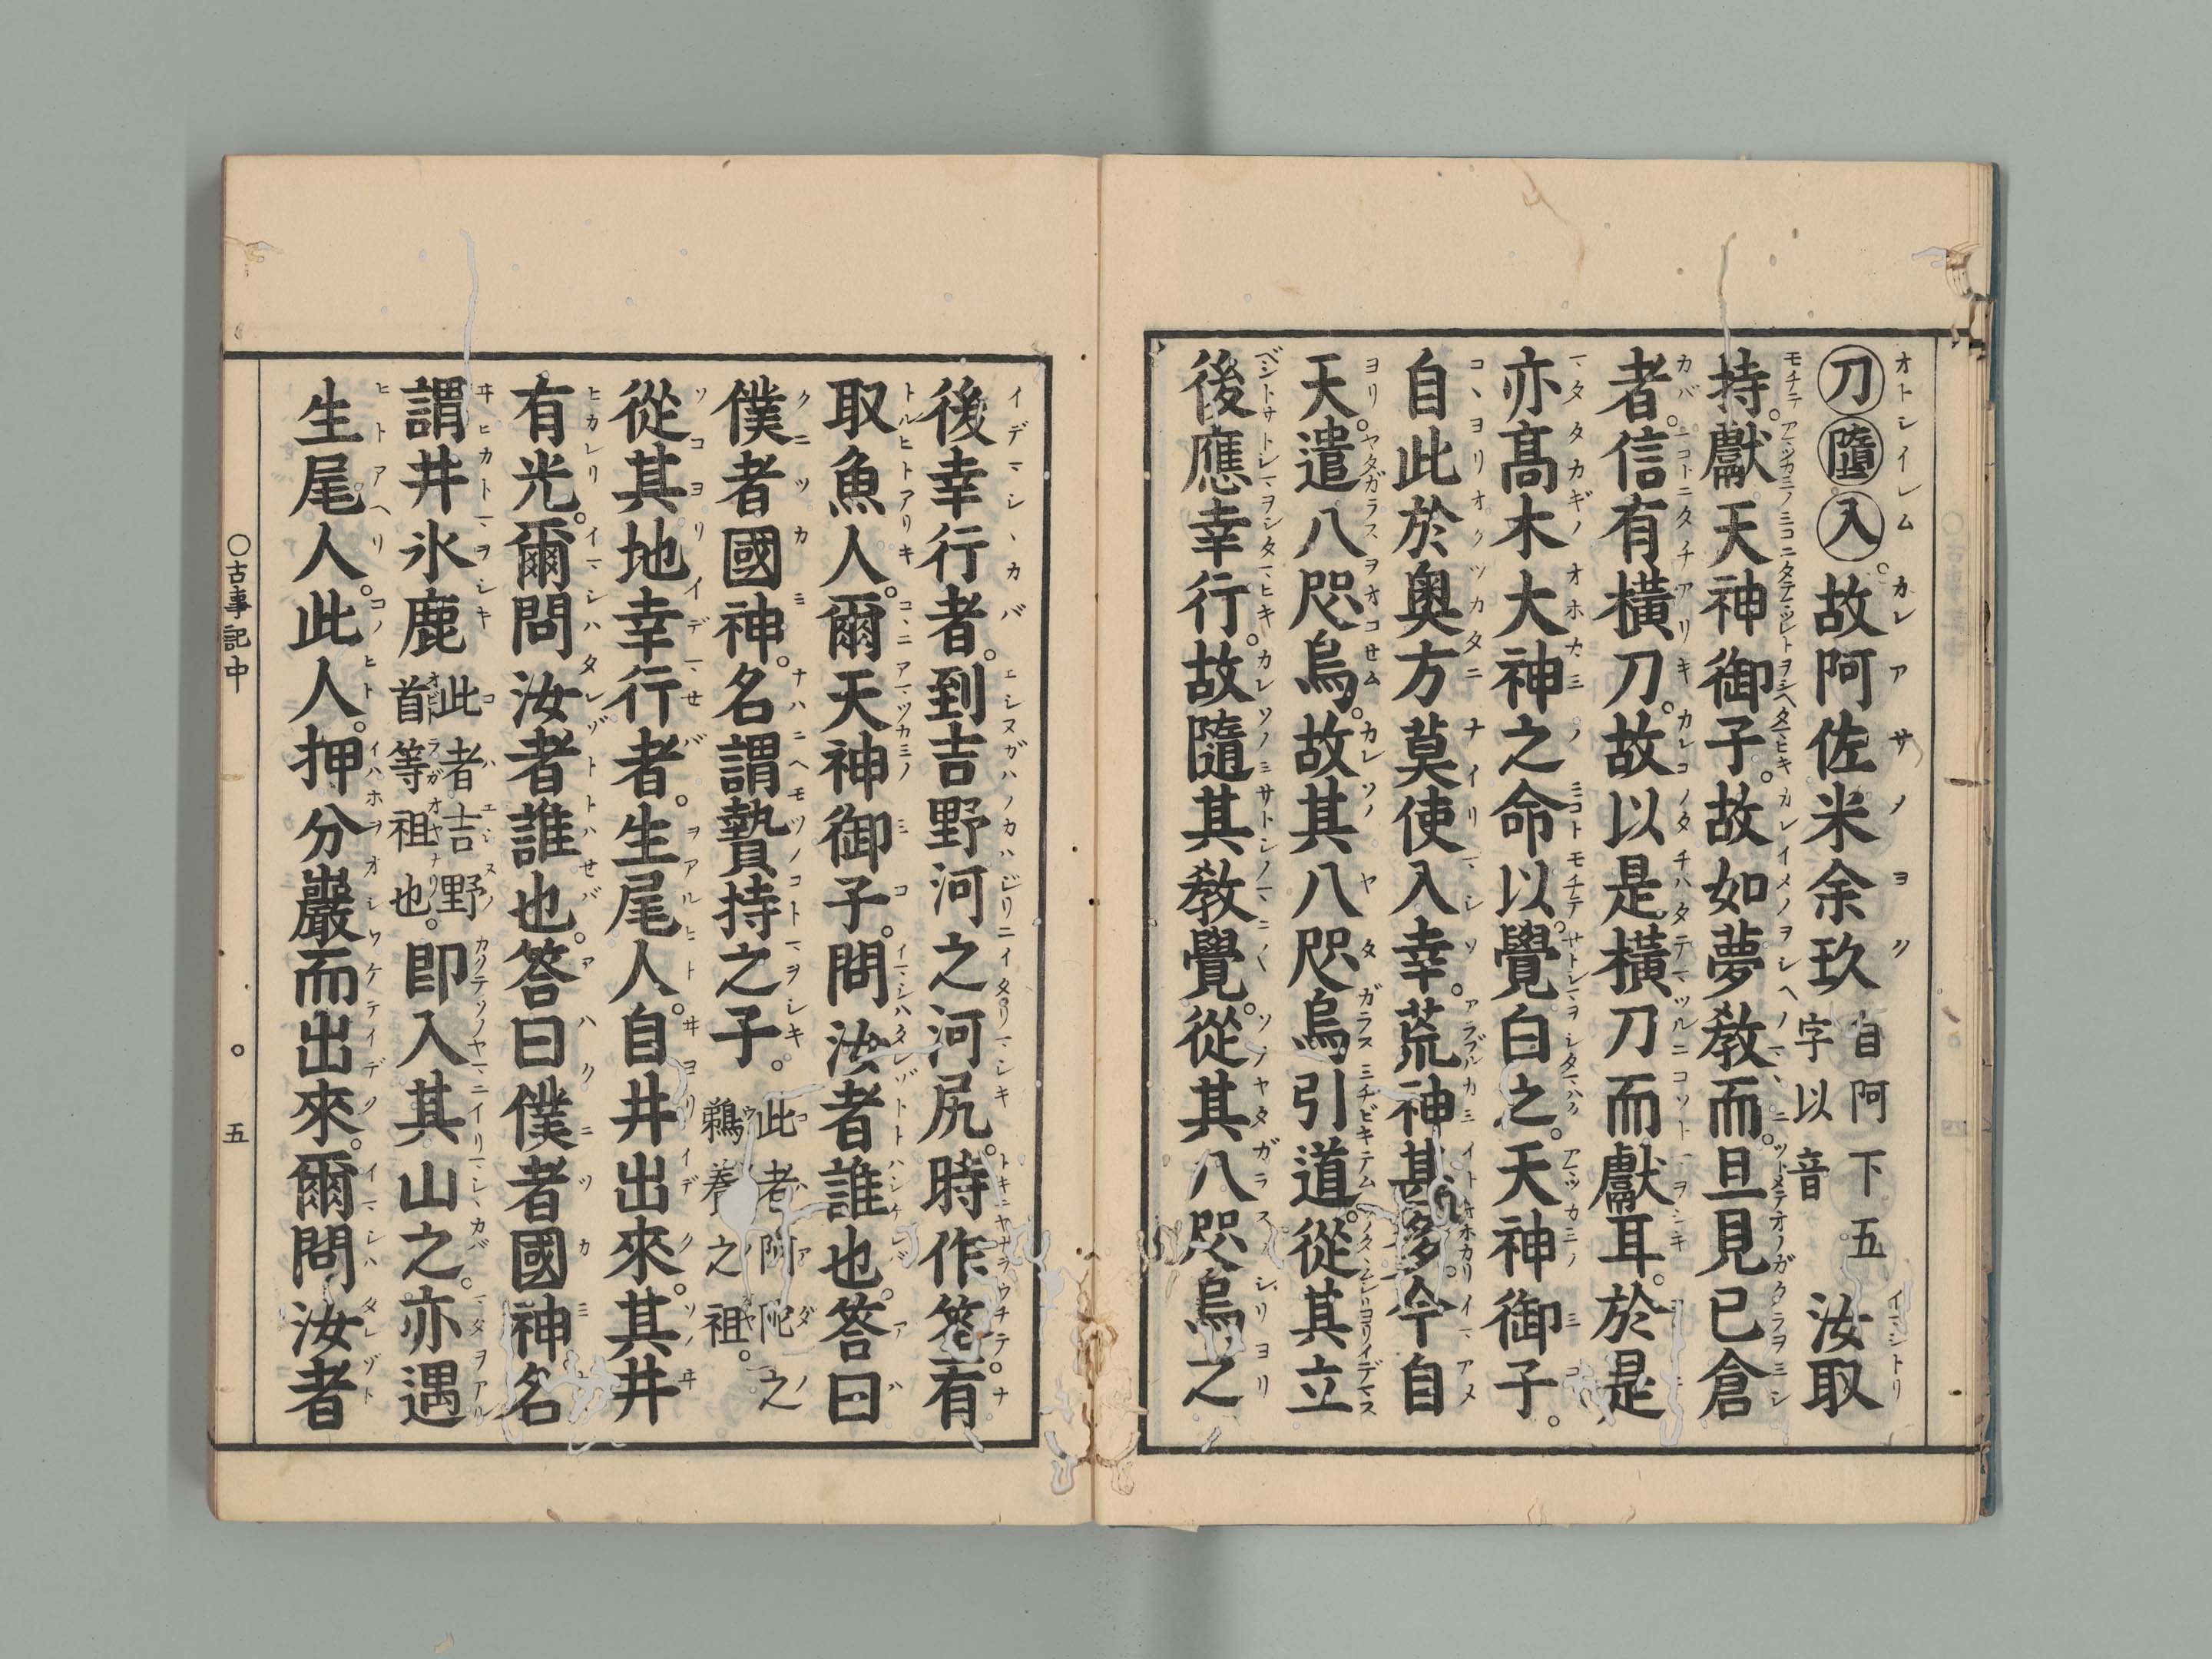 刀隨入。故阿佐米余玖自阿下五字以音汝取
持。獻天神御子。故如夢教而。旦見己倉
者。信有橫刀。故以是橫刀而獻耳。於是
亦高木大神之命以。覺白之。天神御子。
自此於奥方莫使入幸。荒神甚多。今自
天。遣八咫烏。故其八咫烏引道。從其立
後應幸行。故隨其教覺。從其八咫烏之
後幸行者。到吉野河之河尻。時作筌有
取魚人。爾天神御子。問汝者誰也。答曰
僕者國神。名謂贄持之子。此者阿陀之鵜養之祖。
從其地幸行者。生尾人。自井出來。其井
有光。爾問汝者誰也。答曰僕者國神名
謂井氷鹿此者吉野首等祖也。即入其山之。亦遇
生尾人。此人。押分巖而出來。爾問汝者
〇古事記中 五